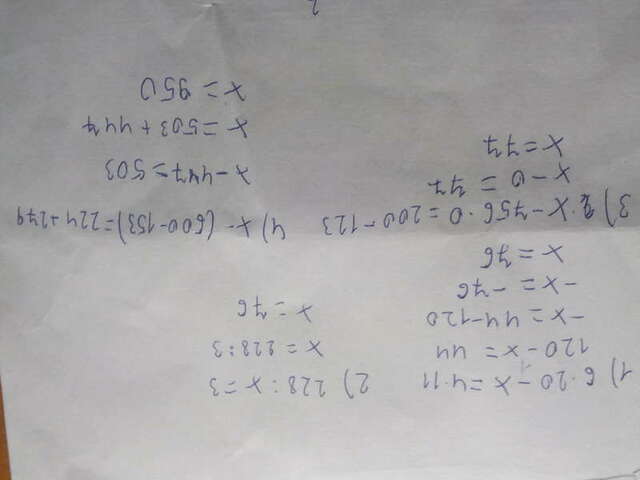 1) 6·20-x=4·11
120-x=44
-x=44-120
-x=-76
x=76
2) 228:x=3
x=228:3
x=76
3) ·x-756·0=200-123
x-0=77
x=77
4) x-(600-153)=224+279
x-447=503
x=503+447
x=950